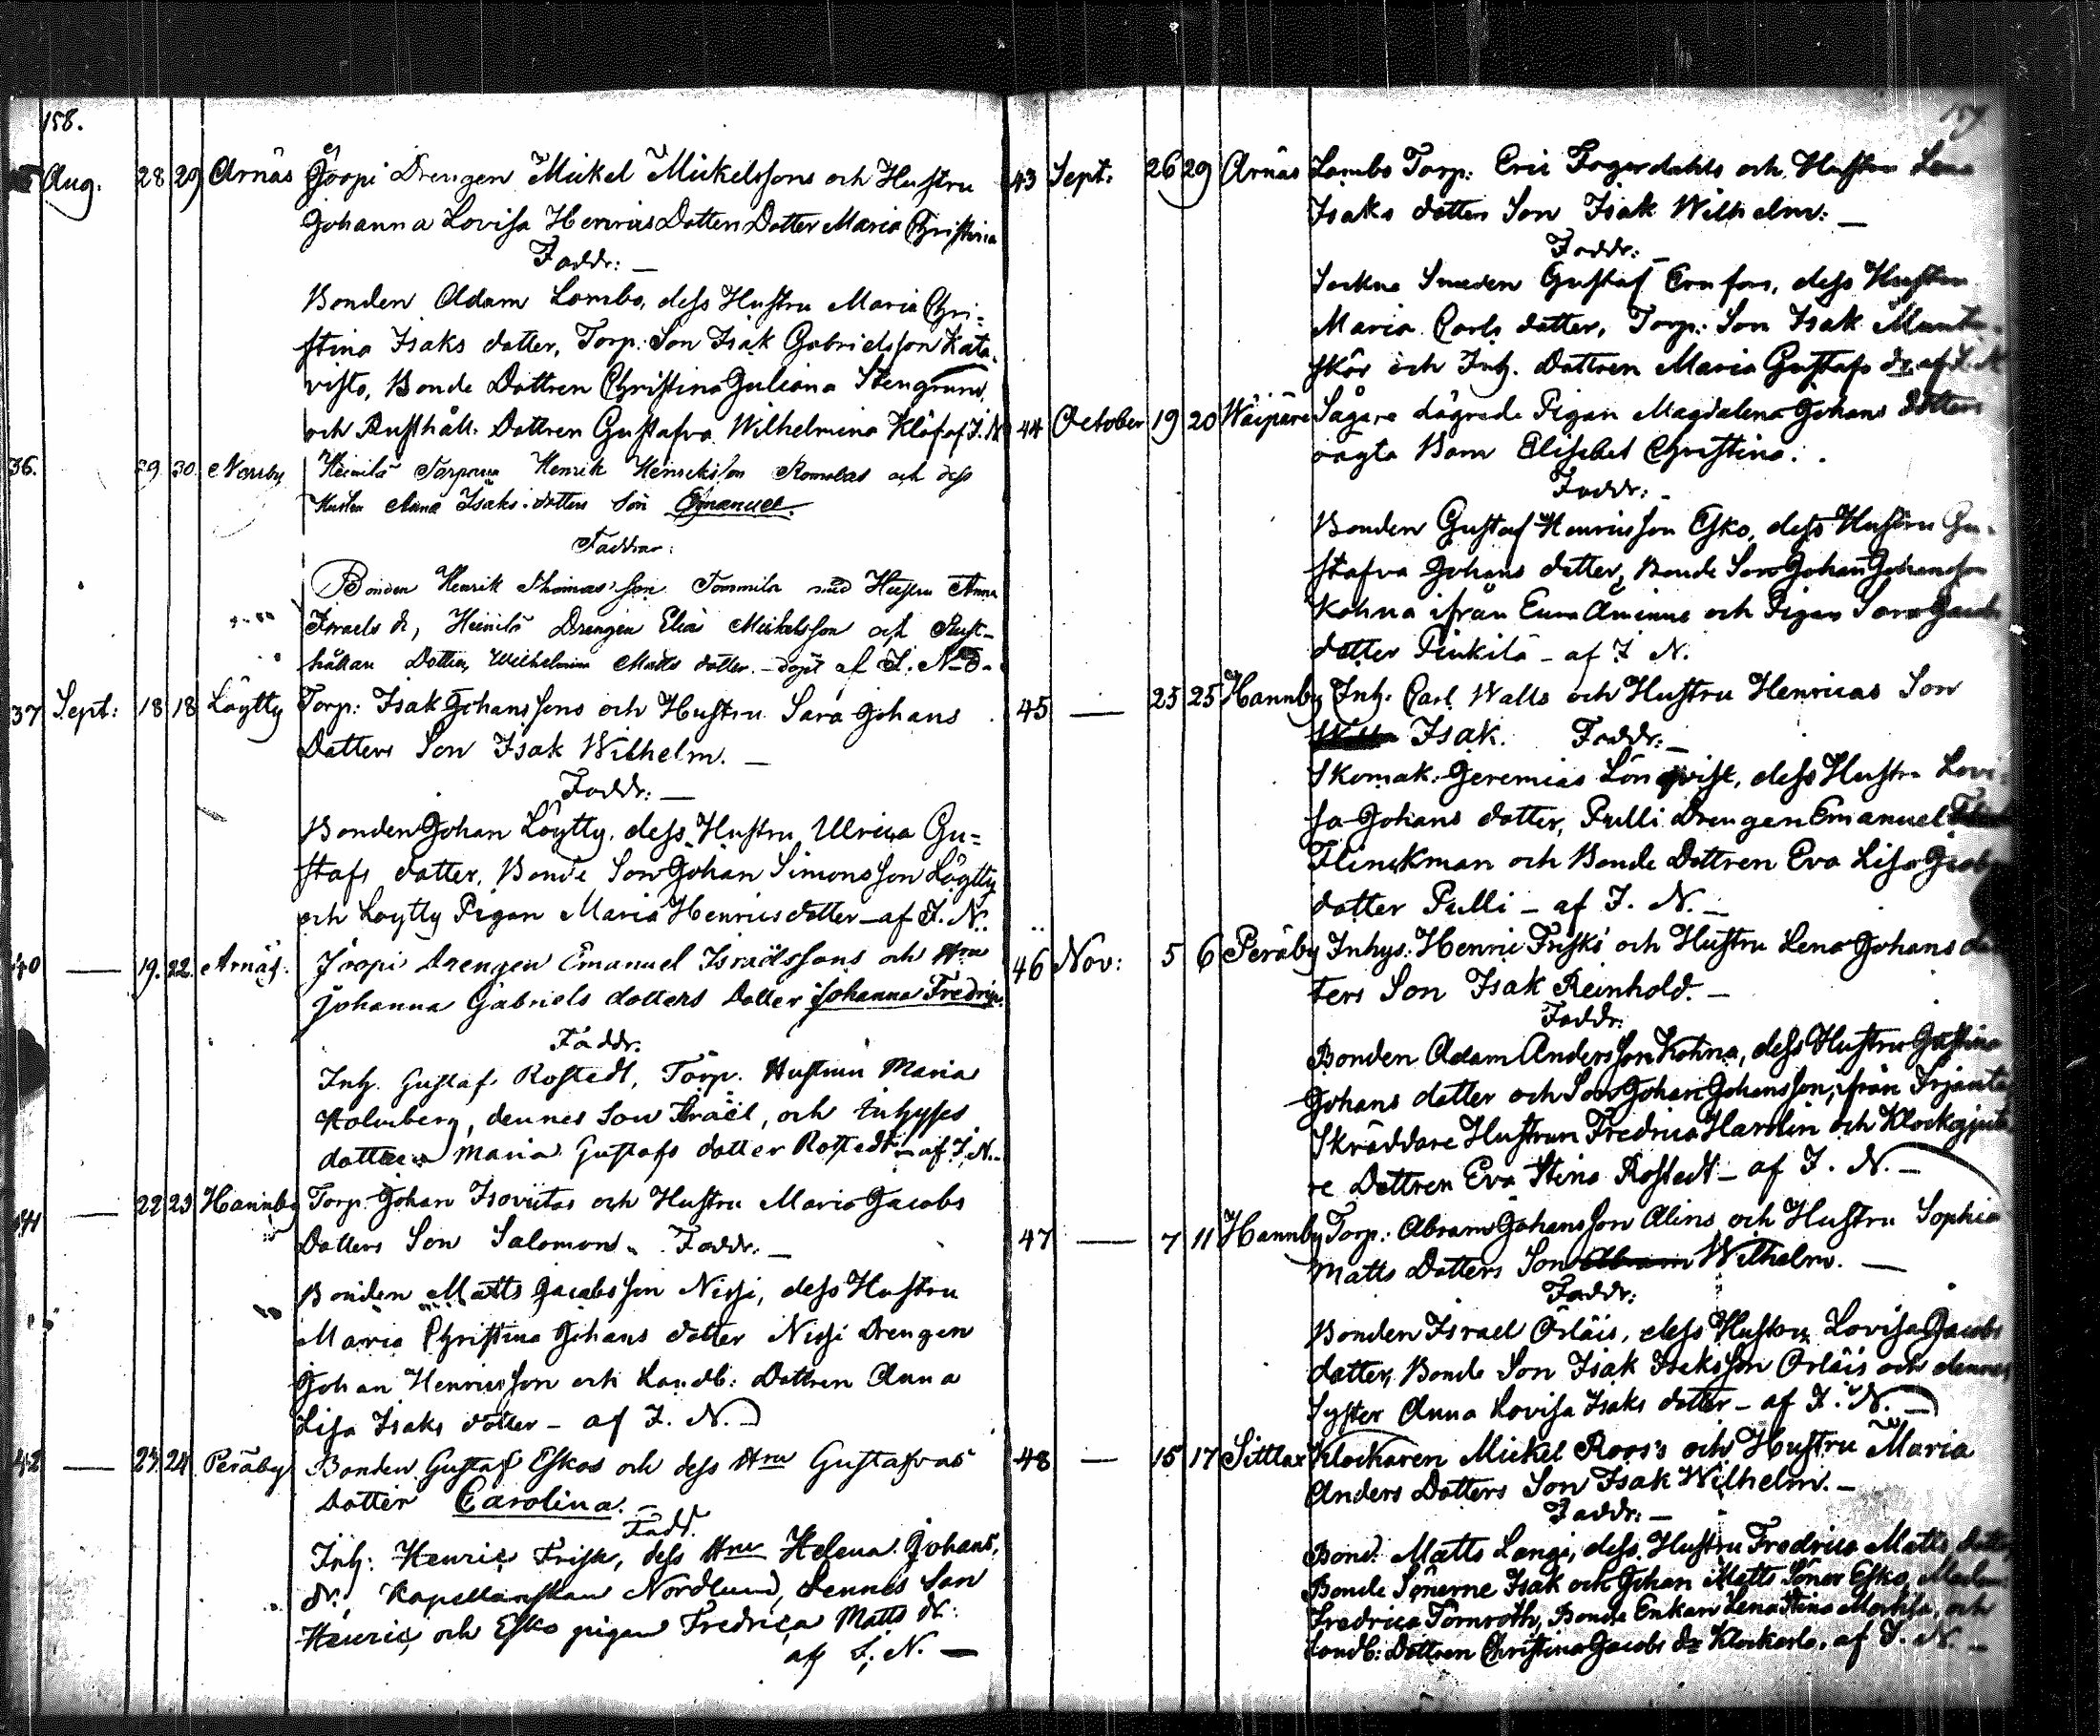 158.
Aug. 28 29 Arnäs Joopi Drengen Mickel Mickelssons och Hustru
Johanna Lovisa Henrics Dotters Dotter Maria Christina
Faddr: —
Bonden Adam Lombo, dess Hustru Maria Chri=
stina Isaks dotter, Torp: Son Isak Gabrielsson Kata-
visto, Bonde Dottren Christina Juliana Stengrund,
och Rusthåll. Dottren Gustafva Wilhelmina Klöf af I. N
36. 29 30. Heinilä Torparen Henrik Henriksson och dess
Hustru Anna Isaks dotters Son Emanuel.
Faddrar:
Bonden Henrik Thomas'son Tommila med Hustru Anna
Israels dr, Heinilä Drengen Elias Mickelsson och Rust-
hållare Dottren, Wilhelmina Matts dotter. — döpt af I. N–d–
37 Sept: 18 18 Löytty Torp: Isak Johanssons och Hustru Sara Johans
Dotters Son Isak Wilhelm. —
Faddr: —
Bonden Johan Löytty, dess Hustru Ulrica Gu=
stafs dotter, Bonde Son Johan Simonsson Löytty
och Löytty Pigan Maria Henricsdotter — af I. N.
40 — 19. 22. Arnäs. Joopi Drengen Emanuel Israelssons och Hru
Johanna Gabriels dotters Dotter Johanna Fredrica.
Faddr.
Inh. Gustaf Rostedt, Torp. Hustrun Maria
Holmberg, dennes Son Israël, och inhyses
dottren Maria Gustafs dotter Rostedt — af I. N.–
41 — 22 23 Hannby Torp. Johan Isoviitas och Hustru Maria Jacobs
Dotters Son Salomon. Faddr. —
Bonden Matts Jacobsson Nissi, dess Hustru
Maria Christina Johans dotter Nissi Drengen
Johan Henricsson och Landb: Dottren Anna
Lisa Isaks dotter — af I. N.
42 — 23. 24 Peräby Bonden Gustaf Eskos och dess Hru Gustafvas
Dotter Carolina. —
Fadd.
Inh: Henric Frisk, dess Hru Helena Johans,
dr. Kapellanskan Nordlund, dennes Son
Henric, och Esko pigan Fredrica Matts dr.
af I. N. —
159
43 Sept: 26 29 Arnäs Lombo Torp: Eric Fagerdahls och Hustru Lena
Isaks dotters Son Isak Wilhelm: —
Faddr: —
Sockne Smeden Gustaf Ernfors, dess Hustru
Maria Carls dotter, Torp: Son Isak
skär och Inh. Dottren Maria Gustafs dr af I. N
44 October 19 20 Wäipäre Sågare dägrade Pigan Magdalena Johans dotters
oägta Barn Elisabet Christina.
Faddr: —
Bonden Gustaf Henricsson Esko, dess Hustru Gu-
stafva Johans dotter, Bonde Son Johan Johansson
Kohna ifrån Eura Åminne och Pigan Sara Jacobs
dotter Pinkilä — af I N.
45 — 25 25 Hannby Inh. Carl Walls och Hustru Henricas Son
Isak. Faddr: —
Skomak. Jeremias Lönqvist, dess Hustru Lovi-
sa Johans dotter, Pulli Drengen Emanuel
Flinckman och Bonde Dottren Eva Lisa Jacobs
dotter Pulli — af I. N. —
46 Nov: 5 6 Peräby Inhys. Henric Frisks och Hustru Lena Johans dot
ters Son Isak Reinhold. —
Faddr:
Bonden Adam Andersson Kohna, dess Hustru Justina
Johans dotter och Son Johan Johansson, ifrån
Skräddare Hustrun Fredrica Hardin och Klockgjuta
re Dottren Eva Stina Rostedt — af I. N. —
47 — 7 11 Hannby Torp: Abram Johansson Alins och Hustru Sophia
Matts Dotters Son Abram Wilhelm. —
Faddr:
Bonden Israel Orläis, dess Hustru Lovisa Jacobs
dotter, Bonde Son Isak Isaksson Orläis och dennes
Syster Anna Lovisa Isaks dotter — af I. N. —
48 — 15 17 Sittlax Klockaren Mickel Roos's och Hustru Maria
Anders Dotters Son Isak Wilhelm. —
Faddr: —
Bond. Matts Langi, dess Hustru Fredrica Matts dotter,
Bonde Sönerne Isak och Johan Matts Söner Esko,
Fredrica Törnroth, Bonde Enkan Lena Stina, och
Landb: Dottren Christina Jacobs dr Klockarla. af I. N. —